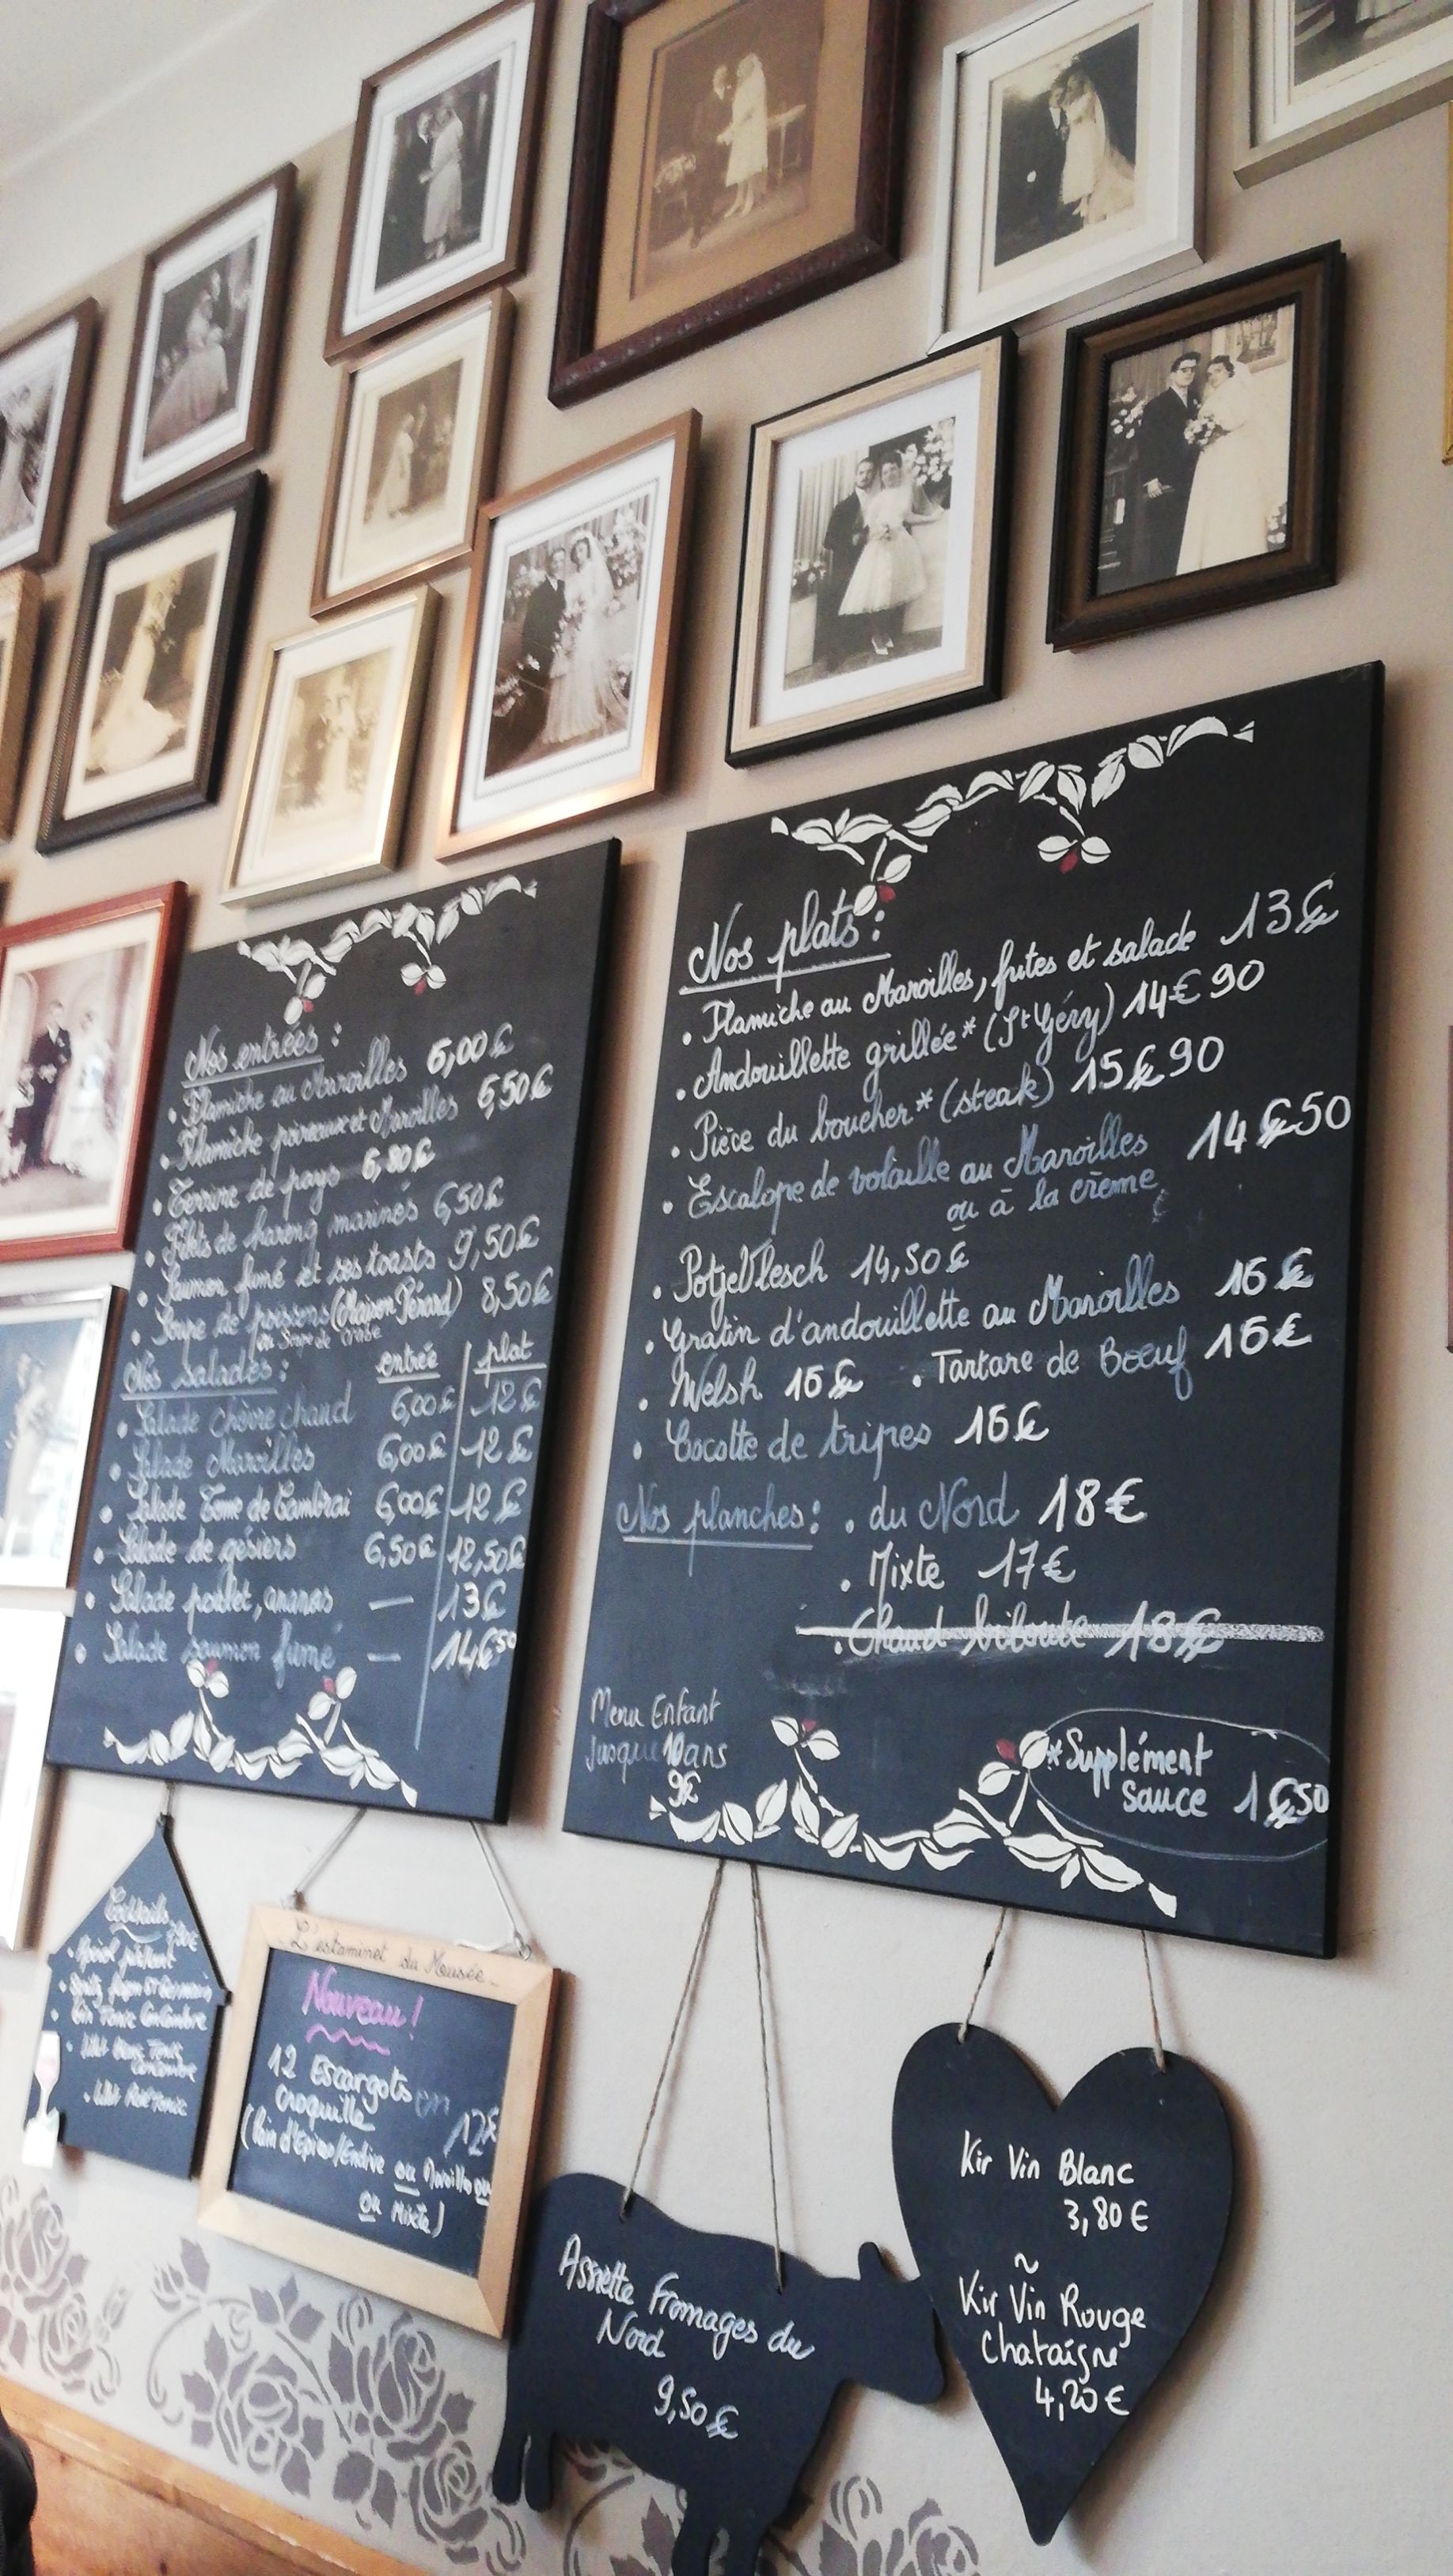 Nos entrées :
• Flamiche au Maroilles 6,00€
• Flamiche poireaux et Maroilles 6,50€
• Terrine de pays 6,80€
• Filets de hareng marinés 6,50€
• Saumon fumé et ses toasts 9,50€
• Soupe de poissons (Maison Pérard) 8,50€
ou Soupe de Crabe
Nos salades : entrée plat
• Salade chèvre chaud 6,00€ 12€
• Salade Maroilles 6,00€ 12€
• Salade Tome de Cambrai 6,00€ 12€
• Salade de gésiers 6,50€ 12,50€
• Salade poulet, ananas — 13€
• Salade saumon fumé — 14€50
Nos plats :
• Flamiche au Maroilles, frites et salade 13€
• Andouillette grillée* (St Géry) 14€90
• Pièce du boucher* (steak) 15€90
• Escalope de volaille au Maroilles 14€50
ou à la crème
• Potjevlesch 14,50€
• Gratin d'andouillette au Maroilles 16€
• Welsh 16€ • Tartare de Boeuf 16€
• Cocotte de tripes 16€
Nos planches : • du Nord 18€
• Mixte 17€
• Chaud biloute 18€
Menu Enfant
Jusque 10 ans
9€
*Supplément
sauce 1€50
Cocktails
Gin Tonic Concombre
L'estaminet du Musée
Nouveau !
12 Escargots en
croquille 12€
(Pain d'Epices/Endive ou Maroilles ou
ou Mixte)
Assiette Fromages du
Nord
9,50€
Kir Vin Blanc
3,80€
~
Kir Vin Rouge
Chataigne
4,20€